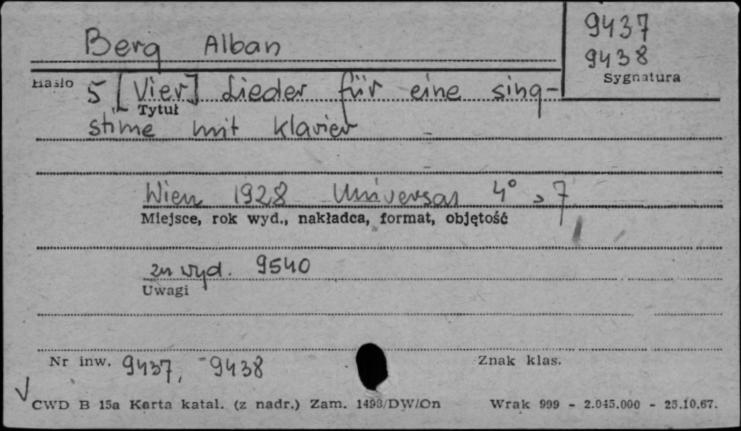 9437
Berg Alban
9438
Sygnatura
Hasło
5 [Vier] Lieder für eine sing-
Tytuł
stime mit Klavier
Wien 1928 Universal 4° s 7
Miejsce, rok wyd., nakładca, format, objętość
zn wyd. 9540
Uwagi
Nr inw. 9437, 9438
Znak klas.
CWD B 15a Karta katal. (z nadr.) Zam. 1493/DW/On Wrak 999 - 2.045.000 - 25.10.67.